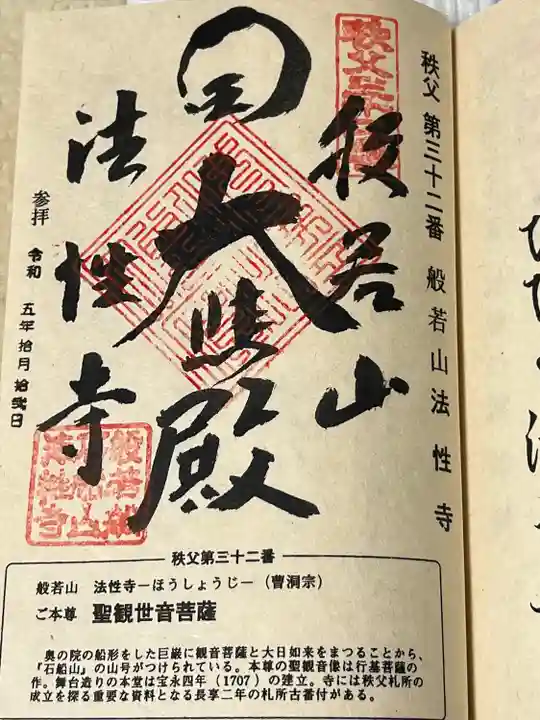 秩父 第三十二番 般若山 法性寺
般若山
大悲殿
法性寺
参拝 令和 五年拾月拾弐日
秩父第三十二番
般若山 法性寺−ほうしょうじ−(曹洞宗)
ご本尊 聖観世音菩薩
奥の院の船形をした巨巌に観音菩薩と大日如来をまつることから、
『石船山』の山号がつけられている。本尊の聖観音像は行基菩薩の
作。舞台造りの本堂は宝永四年(1707)の建立。寺には秩父札所の
成立を探る重要な資料となる長享二年の札所古番付がある。